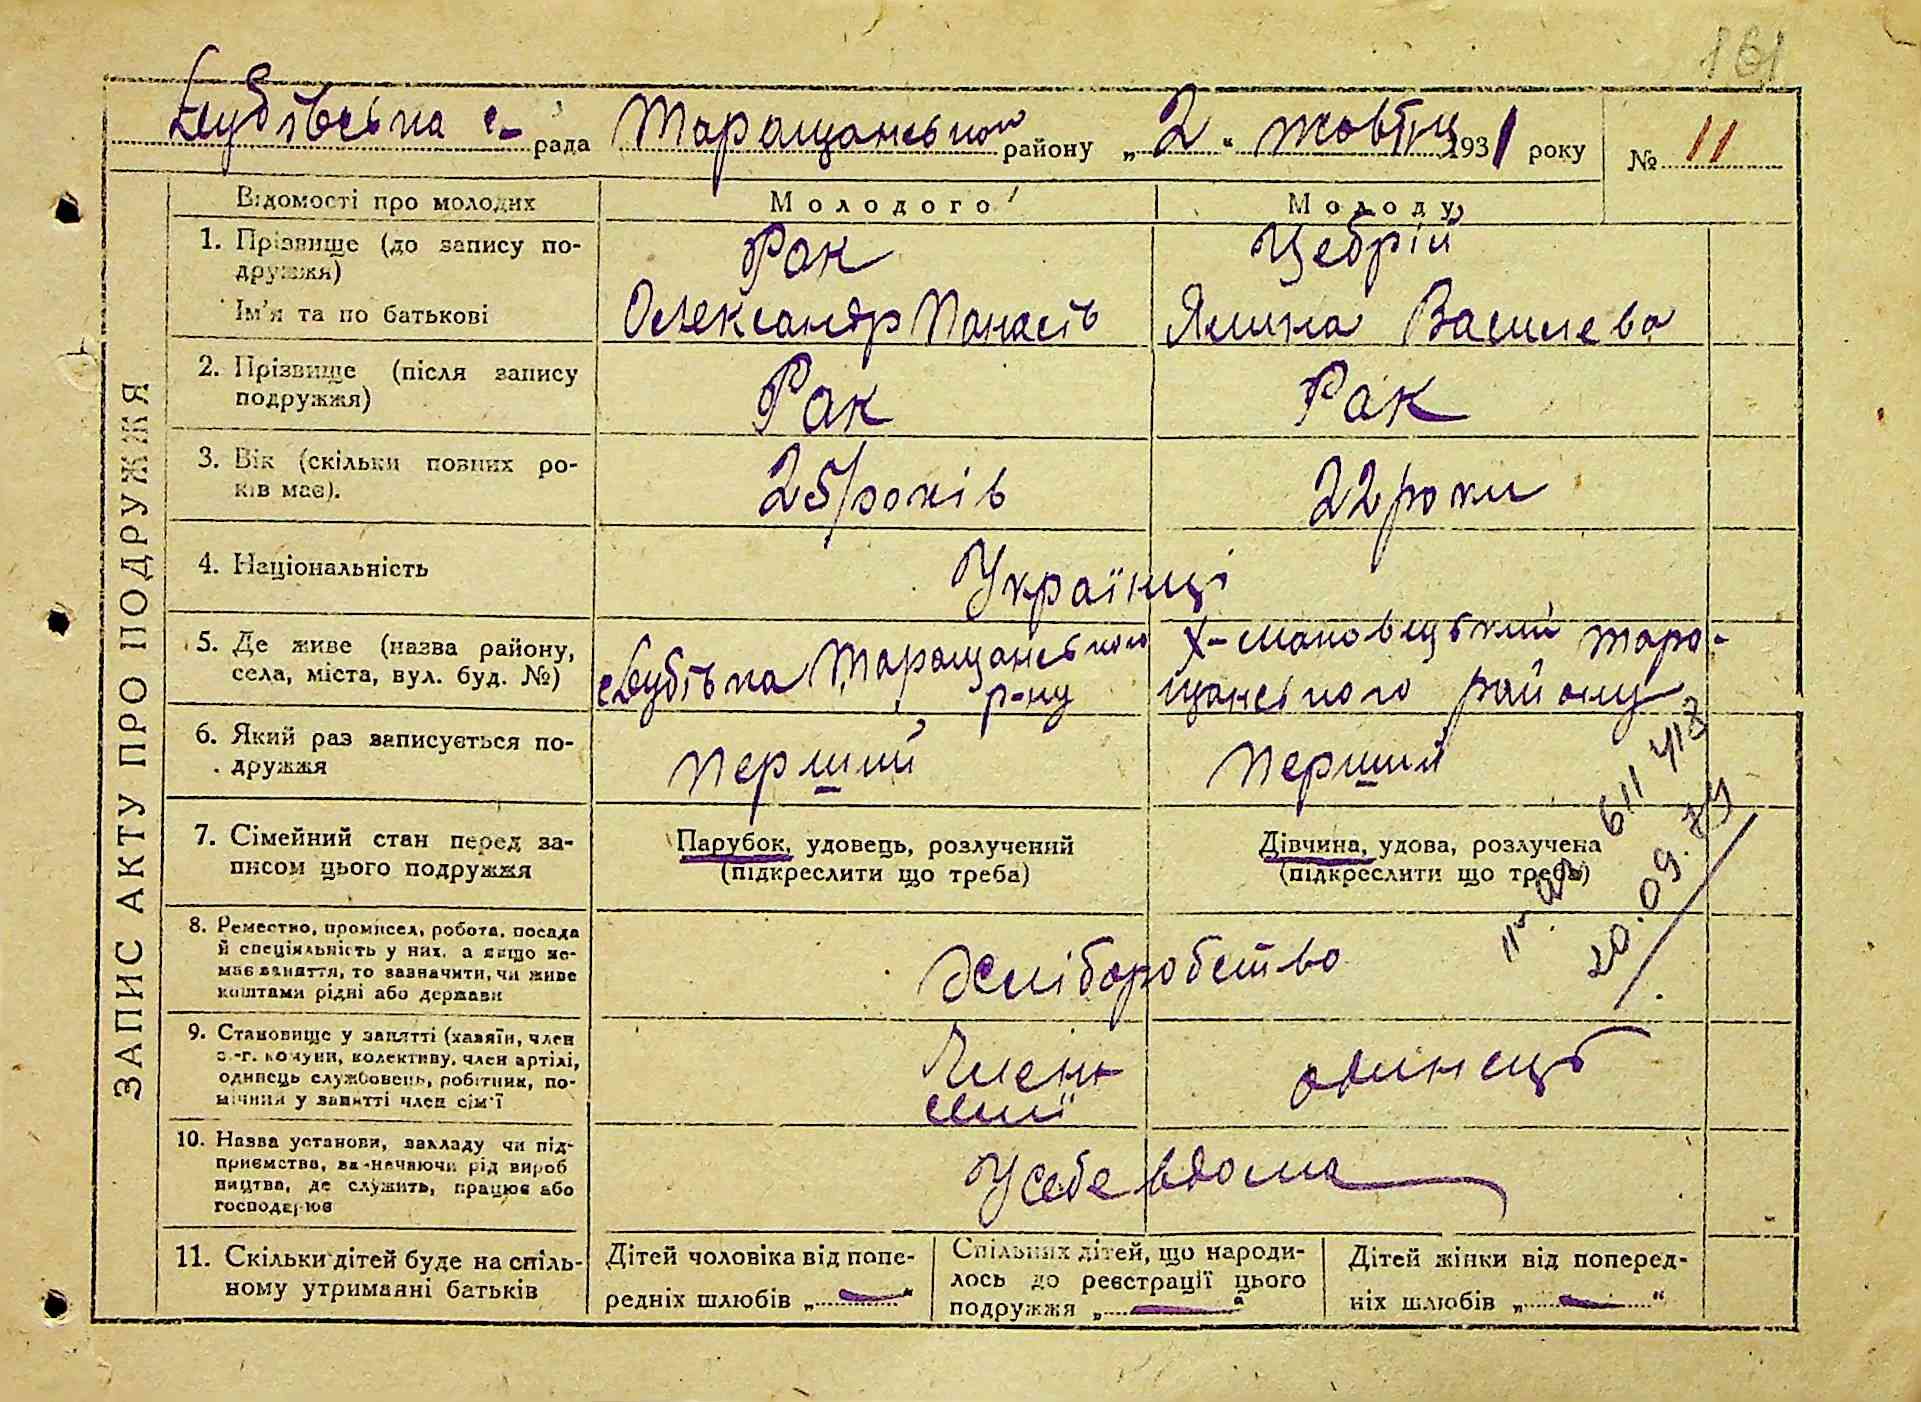 161
Дубівська с- рада Таращанського району „2" жовтця 1931 року № 11
ЗАПИС АКТУ ПРО ПОДРУЖЖЯ
Відомості про молодих Молодого Молоду
1. Прізвище (до запису по- Рак Цебрій
дружжя)
Ім'я та по батькові Олександр Панасів Ялина Василева
2. Прізвище (після запису Рак Рак
подружжя)
3. Вік (скільки повних ро- 25 років 22 роки
ків має).
4. Національність Українці
5. Де живе (назва району, с Дубівка Таращанського Х-мановецький Тара-
села, міста, вул. буд. №) р-ну щанського району
6. Який раз записується по- перший перший
дружжя
7. Сімейний стан перед за- Парубок, удовець, розлучений Дівчина, удова, розлучена
писом цього подружжя (підкреслити що треба) (підкреслити що треба)
611 418
20.09.
8. Ремество, промисел, робота, посада
й спеціяльність у них, а якщо не- хліборобство
має заняття, то зазначити, чи живе
коштами рідні або держави
9. Становище у занятті (хазяїн, член
с.-г. комуни, колективу, член артілі, Член одинець
одинець службовець, робітник, по- сімї
мічний у занятті член сім'ї
10. Назва установи, закладу чи під-
приємства, зазначаючи рід вироб У себе вдома
ництва, де служить, працює або
господарює
11. Скільки дітей буде на спіль- Дітей чоловіка від попе- Спільних дітей, що народи- Дітей жінки від поперед-
ному утриманні батьків редніх шлюбів „—" лось до реєстрації цього ніх шлюбів „—"
подружжя „—"